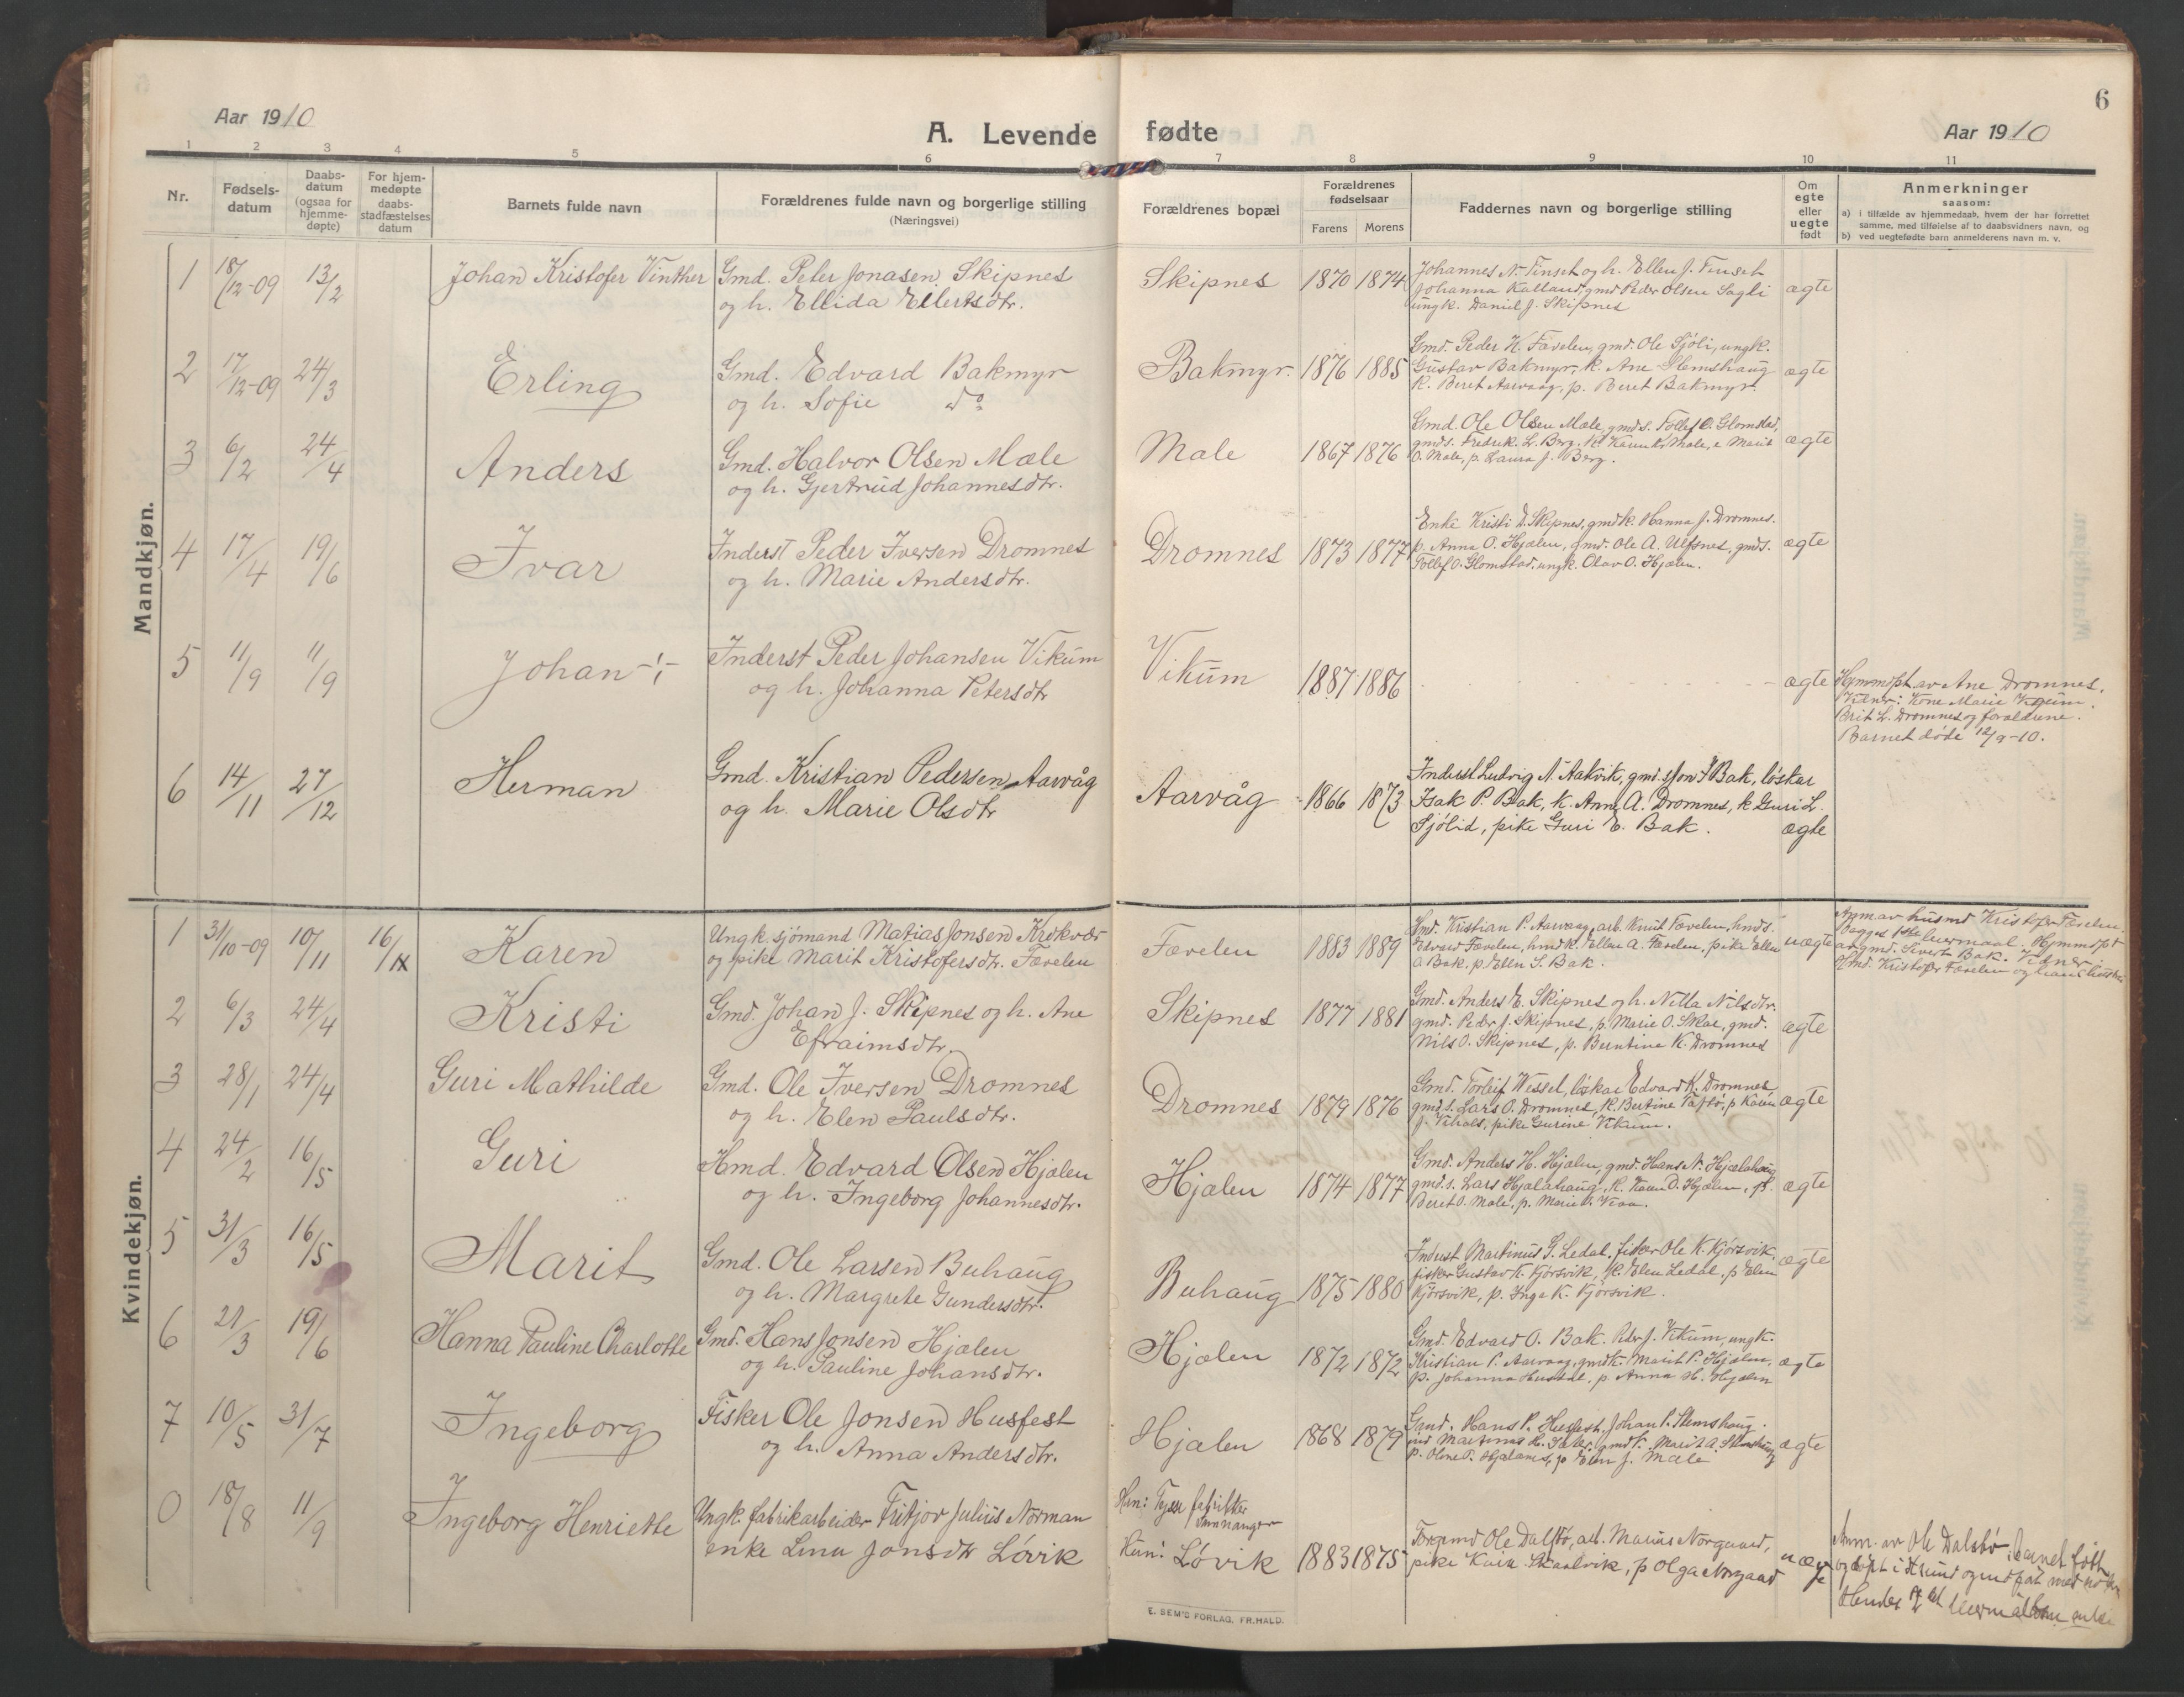 6
Aar 1910
A. Levende fødte
Aar 1910
1 2 3 4 5 6 7 8 9 10 11
Nr.
Fødsels-
datum
Daabs-
datum
(ogsaa for
hjemme-
døpte)
For hjem-
medøpte
daabs-
stadfæstelses
datum
Barnets fulde navn
Forældrenes fulde navn og borgerlige stilling
(Næringsvei)
Forældrenes bopæl
Forældrenes
fødselsaar
Farens Morens
Faddernes navn og borgerlige stilling
Om
egte
eller
uegte
født
Anmerkninger
saasom:
a) i tilfælde av hjemmedaab, hvem der har forrettet
samme, med tilføielse af to daabsvidners navn, og
b) ved uegtefødte barn anmelderens navn m. v.
Mandkjøn.
1 18/12-09 13/2 Johan Kristofer Vinther
Gmd. Peter Jonasen Skipnes
og h. Ellida Ellertsdtr.
Skipnes 1870 1874
Johannes N. Tinset og h. Ellen J. Tinset
Johanna Kalland, gmd Peder Olsen Sagli
ungk. Daniel J. Skipnes
ægte
2 17/12-09 24/3 Erling
Gmd. Edvard Bakmyr
og h. Sofie do
Bakmyr. 1876 1885
Gmd. Peder H. Fævelen, gmd. Ole Sjöli, ungk.
Gustav Bakmyr, k. Ane Stemshaug
k. Beret Aarvaag, p. Beret Bakmyr.
ægte
3 6/2 24/4 Anders
Gmd. Halvor Olsen Mæle
og h. Gjertrud Johannesdtr.
Male 1867 1876
Gmd. Ole Olsen Mæle, gmds. Tollef O. Glomstad,
gmds. Fredrik L. Berg. Male, e Marit
O. Male, p. Laura J. Berg.
ægte
4 17/4 19/6 Ivar
Inderst Peder Iversen Dromnes
og h. Marie Andersdtr.
Dromnes 1873 1877
Enke Kristi D. Skipnes, gmdk. Hanna J. Dromnes.
p. Anna O. Hjælen, gmd. Ole A. Ulfsnes, gmds.
Tollef O. Glomstad, ungk. Olav O. Hjælen.
ægte
5 11/9 11/9 Johan -!-
Inderst Peder Johansen Vikum
og h. Johanna Petersdtr
Vikum 1887 1886
ægte
Hjemmdpt av Ane Dromnes.
Vidner: Kone Marie Vikum.
Berit L. Dromnes og forældrene.
Barnet døde 12/9-10.
6 14/11 27/12 Herman
Gmd. Kristian Pedersen Aarvåg
og h. Marie Olsdtr
Aarvåg 1866 1873
Inderst Ludvig N. Aakvik, gmd. Jon I Bak, løskar
Isak P. Bak, k. Anne A. Dromnes, k Guri L.
Sjölid, pike Guri E. Bak.
ægte
Kvindekjøn.
1 31/10-09 10/11 16/ Karen
Ungk. sjömand Matias Jonsen
og pike Marit Kristofersdtr. Fævelen
Fævelen 1883 1889
Gmd. Kristian P. Aarvaag, arb. Knut Fævelen, hmds.
Edvard Fævelen, hmdk. Ellen A. Fævelen, pike Ellen
A Bak, p. Ellen S. Bak.
uægte
Anm av husmd Kristofer Fævelen.
Begges 1ste leiermaal. Hjemmdpt
av gmd. Sivert Bak. Vidner:
Hmd. Kristofer Fævelen og hans hustru
2 6/3 24/4 Kristi
Gmd. Johan J. Skipnes og h. Ane
Efraimsdtr.
Skipnes 1877 1881
Gmd. Anders E. Skipnes og h. Nilla Nilsdtr.
gmd. Peder J. Skipnes, p. Marie O. Skar, gmd.
Nils O. Skipnes, p. Berntine K. Dromnes
ægte
3 28/1 24/4 Guri Mathilde
Gmd. Ole Iversen Dromnes
og h. Elen Paulsdtr.
Dromnes 1879 1876
Gmd. Torleif Wessel, løskar Edvard K. Dromnes
gmds. Lars O. Dromnes, k. Bertine Taftö, p Karen
J. Vihals, pike Gurine Vikum.
ægte
4 24/2 16/5 Guri
Hmd. Edvard Olsen Hjælen
og h. Ingeborg Johannesdtr.
Hjælen 1874 1877
Gmd. Anders H. Hjælen, gmd. Hans N. Hjælahaug
gmds. Lars Hjælahaug, k. Karen D. Hjælen, p.
Beret O. Male, p. Marie
ægte
5 31/3 16/5 Marit
Gmd. Ole Larsen Buhaug
og h. Margrete Gundersdtr.
Buhaug 1875 1880
Inderst Martinus G. Ledal, fisker Ole K. Kjörsvik,
fisker Gustav K. Kjörsvik, k. Elen Ledal, p Elen
Kjörsvik, p. Inga K. Kjörsvik.
ægte
6 21/3 19/6 Hanna Pauline Charlotte
Gmd. Hans Jonsen Hjælen
og h. Pauline Johansdtr.
Hjælen 1872 1872
Gmd. Edvard O. Bak. Peder J. Vikum, ungk.
Kristian P. Aarvaag, gmdk. Marit P. Hjælen,
p. Johanna Husdal, p. Anna H. Hjælen
ægte
7 10/5 31/7 Ingeborg
Fisker Ole Jonsen Husfest
og h. Anna Andersdtr.
Hjælen 1868 1879
Gmd. Hans P. Husfest, Johan P. Stemshaug.
ind Martinus H. gmdk. Marit A. Stemshaug
p. Oline P. Hjælen, p Elen J. Male
ægte
0 18/8 11/9 Ingeborg Henriette
Ungk. fabrikarbeider Fritjov Julius Norman
enke Lena Jonsdtr Lövik
Han: fabrikker
Hun: Lövik 1883 1875
Ole Dalsbö, arb. Marius Norgaard,
pike Skaalvik, p Olga Norgaard
uægte
Anm. av Ole Dalsbø. Barnet født
og døpt i
Hendes
E. SEM'S FORLAG, FR.HALD.